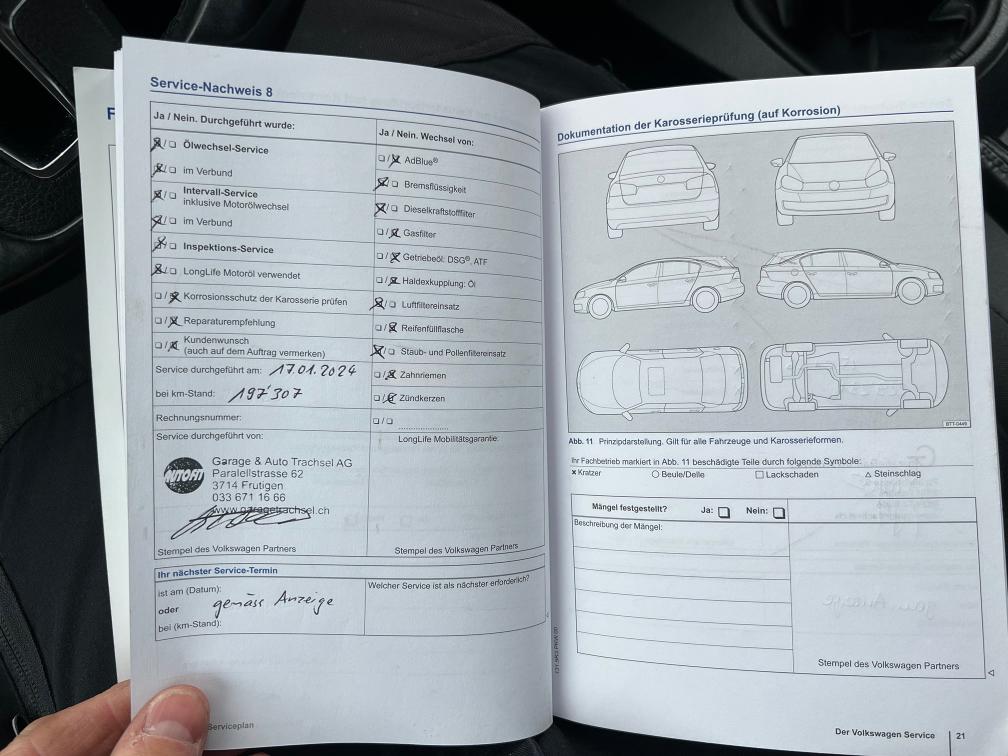 Service-Nachweis 8
Ja / Nein. Durchgeführt wurde:
☒/☐ Ölwechsel-Service
☒/☐ im Verbund
☒/☐ Intervall-Service
inklusive Motorölwechsel
☒/☐ im Verbund
☒/☐ Inspektions-Service
☒/☐ LongLife Motoröl verwendet
☐/☒ Korrosionsschutz der Karosserie prüfen
☐/☒ Reparaturempfehlung
☐/☒ Kundenwunsch
(auch auf dem Auftrag vermerken)
Service durchgeführt am: 17.01.2024
bei km-Stand: 197'307
Rechnungsnummer:
Service durchgeführt von:
AUTOFIT
Garage & Auto Trachsel AG
Paralellstrasse 62
3714 Frutigen
033 671 16 66
www.garagetrachsel.ch
Stempel des Volkswagen Partners
Ja / Nein. Wechsel von:
☐/☒ AdBlue®
☒/☐ Bremsflüssigkeit
☒/☐ Dieselkraftstofffilter
☐/☒ Gasfilter
☐/☒ Getriebeöl: DSG®, ATF
☐/☒ Haldexkupplung: Öl
☒/☐ Luftfiltereinsatz
☐/☒ Reifenfüllflasche
☒/☐ Staub- und Pollenfiltereinsatz
☐/☒ Zahnriemen
☐/☒ Zündkerzen
☐/☐ ....................
LongLife Mobilitätsgarantie:
Stempel des Volkswagen Partners
Ihr nächster Service-Termin
ist am (Datum):
oder gemäss Anzeige
bei (km-Stand):
Welcher Service ist als nächster erforderlich?
Serviceplan
Dokumentation der Karosserieprüfung (auf Korrosion)
BTT-0449
Abb. 11 Prinzipdarstellung. Gilt für alle Fahrzeuge und Karosserieformen.
Ihr Fachbetrieb markiert in Abb. 11 beschädigte Teile durch folgende Symbole:
× Kratzer ○ Beule/Delle ☐ Lackschaden △ Steinschlag
Mängel festgestellt? Ja: ☐ Nein: ☐
Beschreibung der Mängel:
Stempel des Volkswagen Partners
Der Volkswagen Service 21